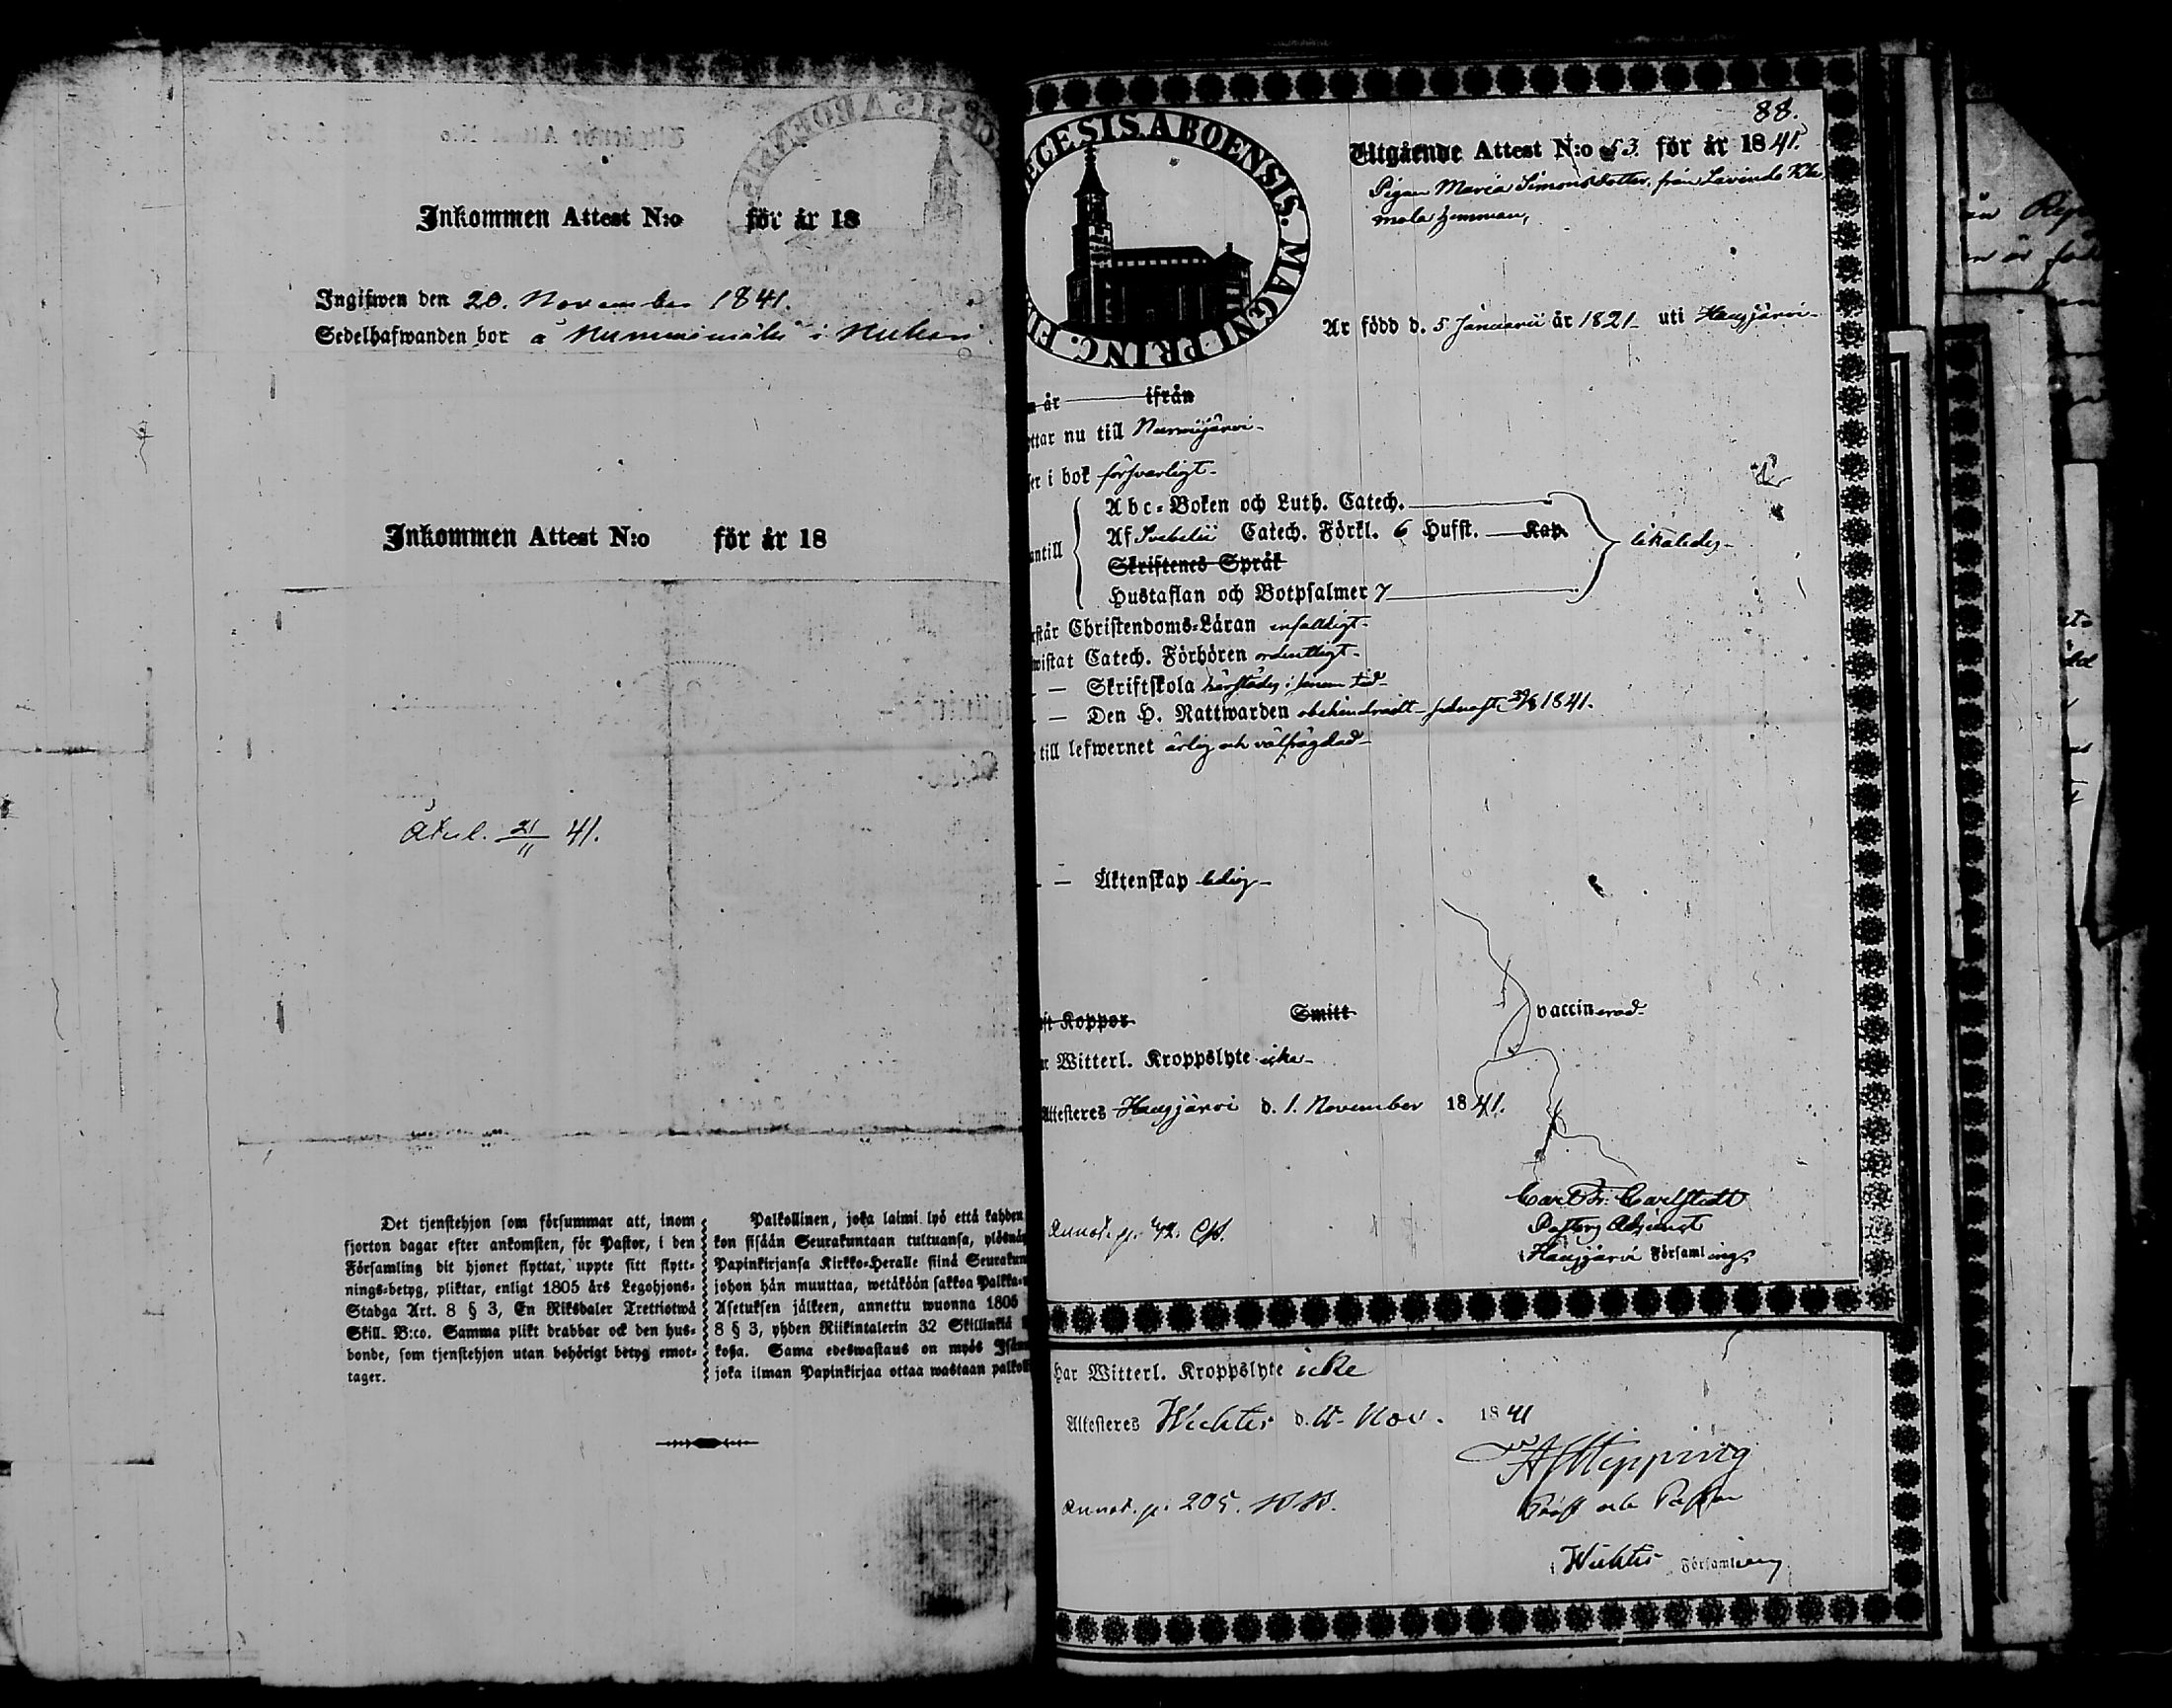 Inkommen Attest N:o för år 18
Ingifwen den 20. November 1841.
Sedelhafwanden bor å Nummimäki i
Inkommen Attest N:o för år 18
21/11 41.
Det tjenstehjon som försummar att, inom
fjorton dagar efter ankomsten, för Pastor, i den
Församling dit hjonet flyttat, uppte sitt flytt-
nings-betyg, pliktar, enligt 1805 års Legohjons-
Stadga Art. 8 § 3, En Riksdaler Trettiotwå
Skill. B:co. Samma plikt drabbar ock den hus-
bonde, som tjenstehjon utan behörigt betyg emot-
tager.
Palkollinen, joka laimi lyö että kahden
kon sisään Seurakuntaan tultuansa, ylösnäy
Papinkirjansa Kirkko-Heralle siinä Seurakun
johon hän muuttaa, wetäköön sakkoa Palkka-
Asetuksen jälkeen, annettu wuonna 1805
8 § 3, yhden Riikintalerin 32 Skillinkiä
kosa. Sama edeswastaus on myös Isän
joka ilman Papinkirjaa ottaa wastaan palkol
88.
ECESIS ABOENSIS. MAGNI PRINC. FI
Utgående Attest N:o 53. för år 1841.
Pigan Maria Simonsdotter, från Lavinda
mola hemman,
Är född d. 5 Januarii år 1821 uti Hausjärvi
n år ifrån
ttar nu till Nurmijärvi
er i bok försvarligt
antill
Abc-Boken och Luth. Catech.
Af Svebelii Catech. Förkl. 6 Hufst. Kap.
Skriftenes Språk
Hustaflan och Botpsalmer 7
likaledes
rstår Christendoms-Läran enfaldigt
wistat Catech. Förhören ordentligt
— Skriftskola härstädes i sinom tid
— Den H. Nattwarden obehindradt senast 29/8 1841.
till lefwernet ärlig och välfrägdad
— Äktenskap ledig
ft Koppor Smitt vaccinerad
r Witterl. Kroppslyte icke
Attesteres Hausjärvi d. 1. November 1841.
Carl Fr. Carlstedt
Pastors Adjunct
i Hausjärvi Församlings
Annot. p.
Har Witterl. Kroppslyte icke
Attesteres Wichtis d. Nov. 1841
Prost och Pastor
i Wichtis Församling
Annot. p. 205.